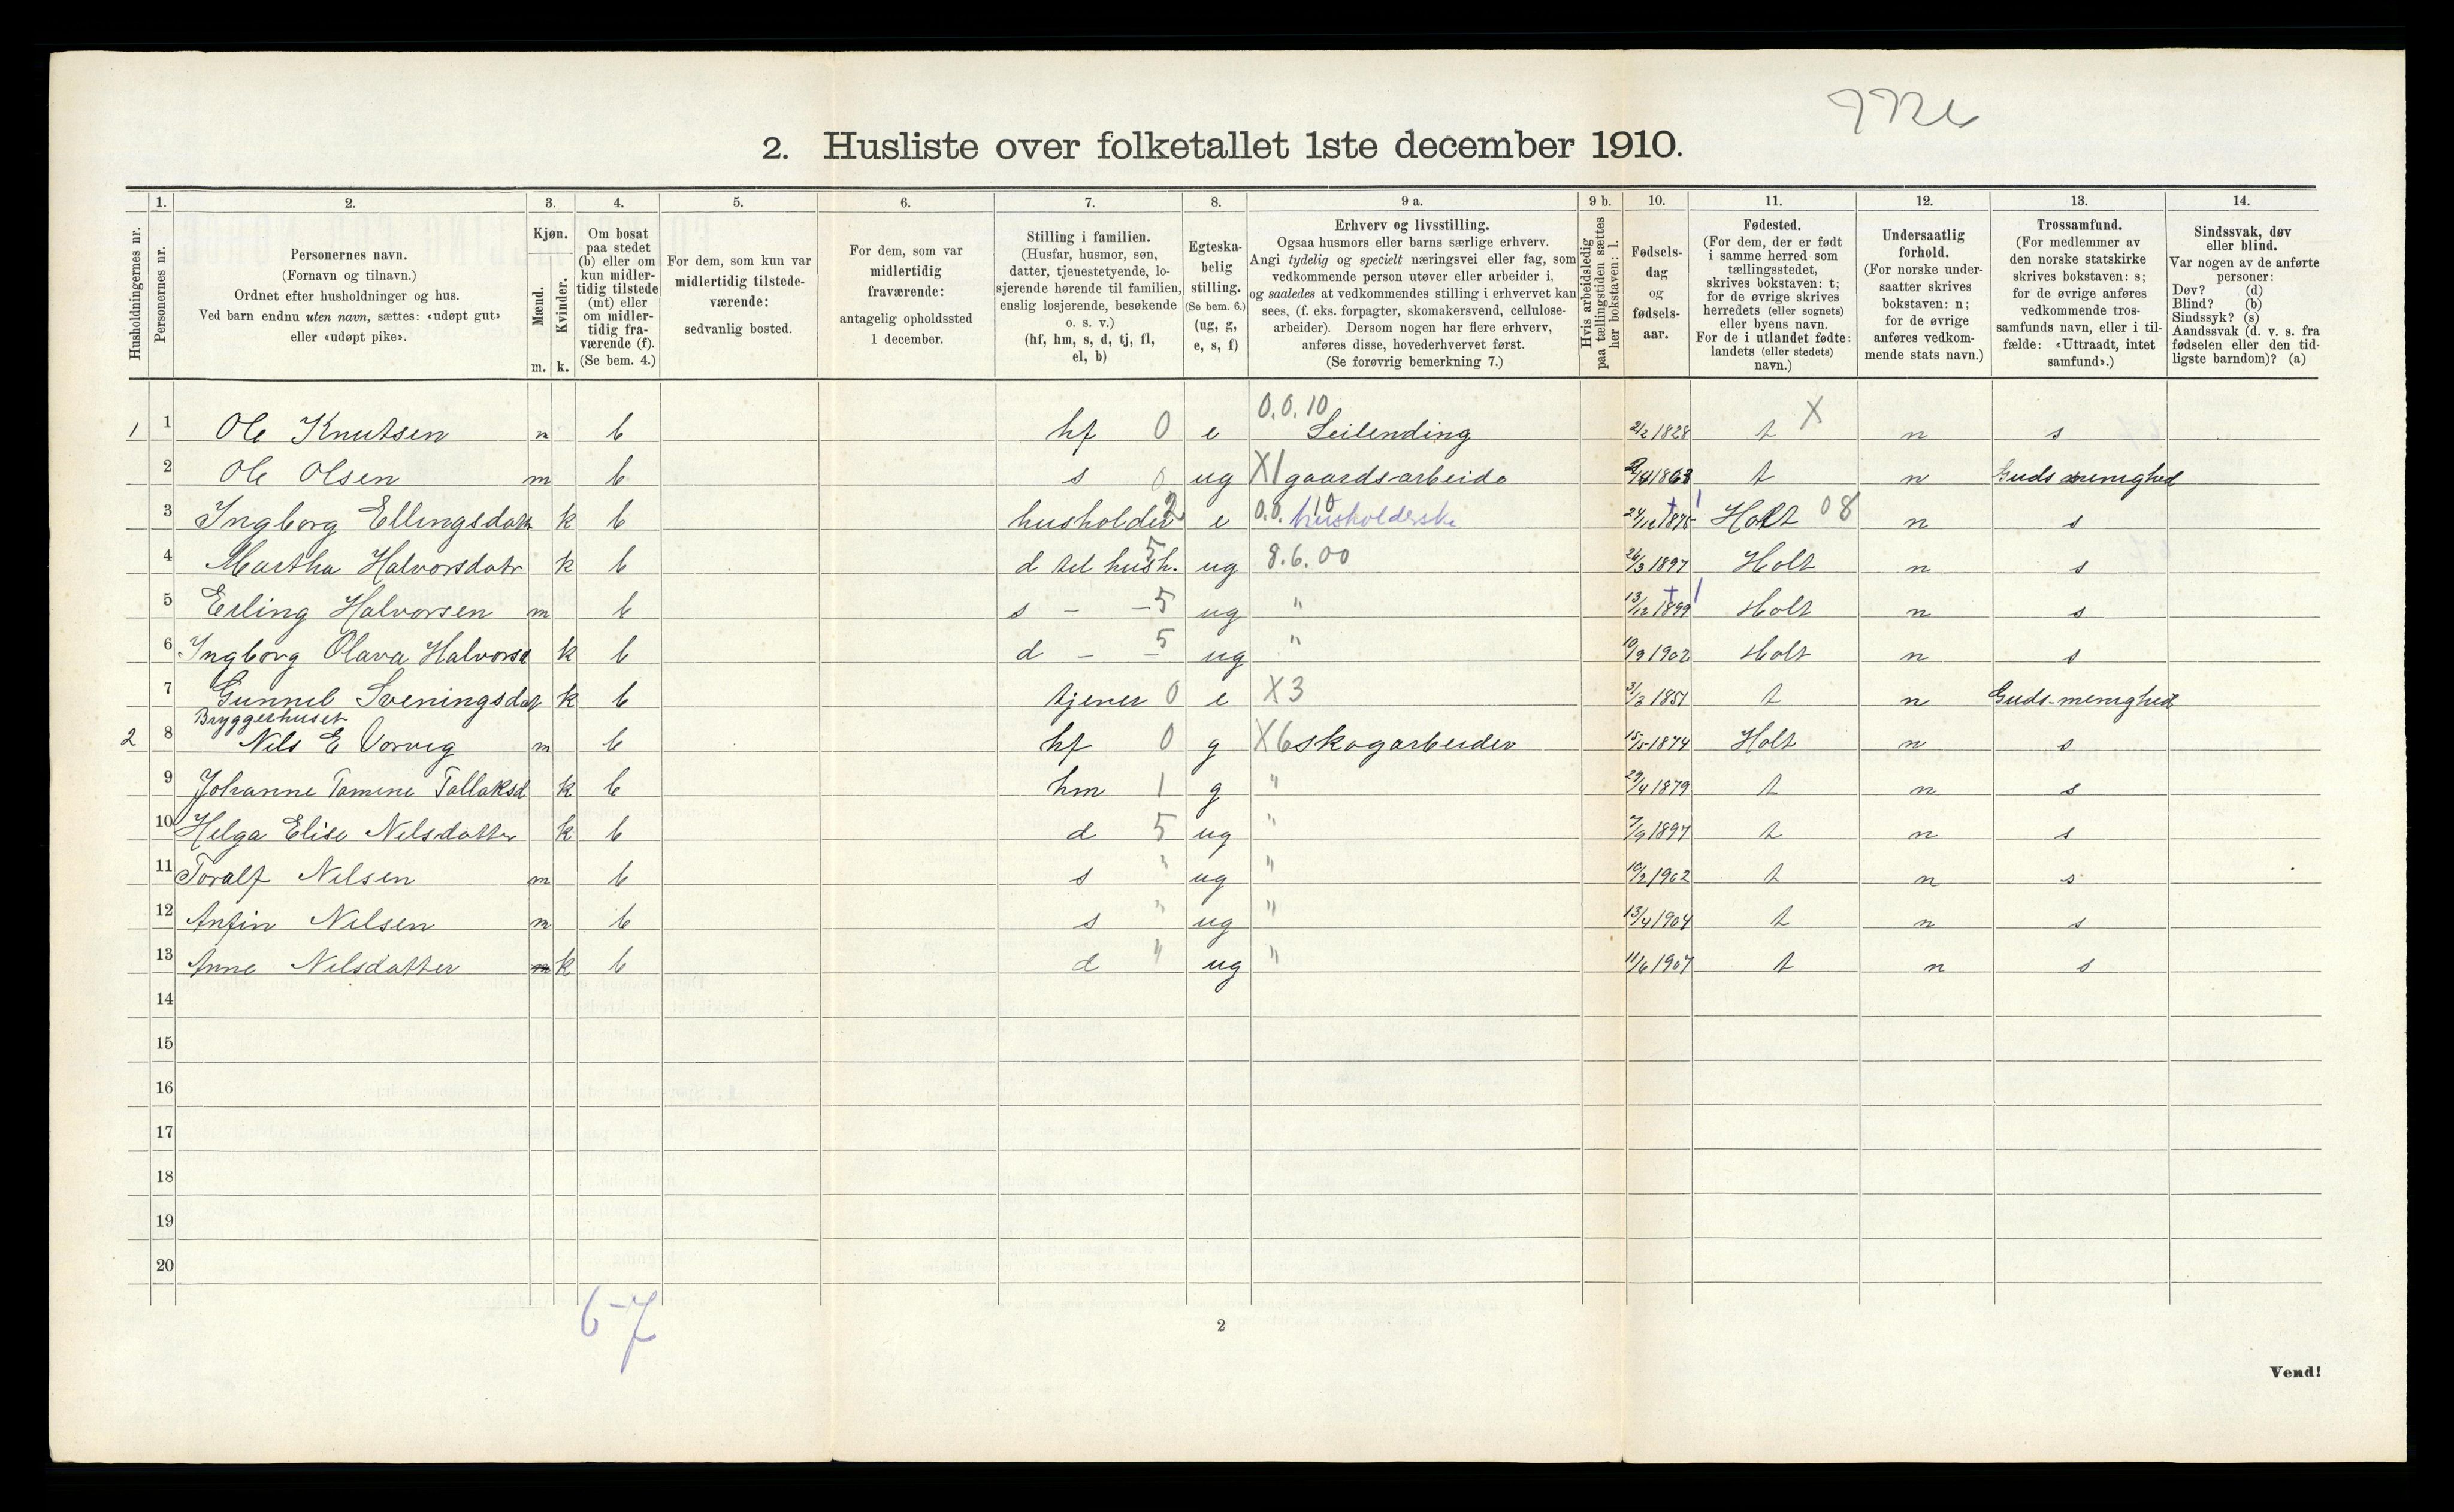 2. Husliste over folketallet 1ste december 1910.
Husholdningernes nr.
1. Personernes nr.
2. Personernes navn. (Fornavn og tilnavn.) Ordnet efter husholdninger og hus. Ved barn endnu uten navn, sættes: «udøpt gut» eller «udøpt pike».
3. Kjøn. Mænd. m. Kvinder. k.
4. Om bosat paa stedet (b) eller om kun midlertidig tilstede (mt) eller om midlertidig fraværende (f). (Se bem. 4.)
5. For dem, som kun var midlertidig tilstedeværende: sedvanlig bosted.
6. For dem, som var midlertidig fraværende: antagelig opholdssted 1 december.
7. Stilling i familien. (Husfar, husmor, søn, datter, tjenestetyende, losjerende hørende til familien, enslig losjerende, besøkende o. s. v.) (hf, hm, s, d, tj, fl, el, b)
8. Egteskabelig stilling. (Se bem. 6.) (ug, g, e, s, f)
9 a. Erhverv og livsstilling. Ogsaa husmors eller barns særlige erhverv. Angi tydelig og specielt næringsvei eller fag, som vedkommende person utøver eller arbeider i, og saaledes at vedkommendes stilling i erhvervet kan sees, (f. eks. forpagter, skomakersvend, cellulosearbeider). Dersom nogen har flere erhverv, anføres disse, hovederhvervet først. (Se forøvrig bemerkning 7.)
9 b. Hvis arbeidsledig paa tællingstiden sættes her bokstaven: l.
10. Fødselsdag og fødselsaar.
11. Fødested. (For dem, der er født i samme herred som tællingsstedet, skrives bokstaven: t; for de øvrige skrives herredets (eller sognets) eller byens navn. For de i utlandet fødte: landets (eller stedets) navn.)
12. Undersaatlig forhold. (For norske undersaatter skrives bokstaven: n; for de øvrige anføres vedkommende stats navn.)
13. Trossamfund. (For medlemmer av den norske statskirke skrives bokstaven: s; for de øvrige anføres vedkommende trossamfunds navn, eller i tilfælde: «Uttraadt, intet samfund».)
14. Sindssvak, døv eller blind. Var nogen av de anførte personer: Døv? (d) Blind? (b) Sindssyk? (s) Aandssvak (d. v. s. fra fødselen eller den tidligste barndom)? (a)
1 1 Ole Knutsen m b hf 0 e 0.0.10 Leilending 2/2 1828 t X n s
2 Ole Olsen m b s 0 ug X1 gaardsarbeide t n Guds menighed
3 Ingborg Ellingsdatr k b husholder 2 e 0.0.10 husholderske Holt 08 n s
4 Martha Halvorsdatr k b d til hush. 5 ug 8.6.00 26/3 1897 Holt n s
5 Erling Halvorsen m b s - - 5 ug " 13/12 1899 Holt n s
6 Ingborg Olava Halvorsd k b d - - 5 ug " 10/9 1902 Holt n s
7 Gunnil Sveningsdat k b tjener 0 e X3 31/3 1851 t n Guds-menighed
Bryggerhuset
2 8 Nils E Vorvig m b hf 0 g X6 skogarbeider 15/5 1874 Holt n s
9 Johanne Tomine Tallaksd k b hm 1 g " 29/4 1879 t n s
10 Helga Elise Nilsdatter k b d 5 ug " 7/9 1897 t n s
11 Toralf Nilsen m b s " ug " 10/2 1902 t n s
12 Anfin Nilsen m b s " ug " 13/4 1904 t n s
13 Anne Nilsdatter k b d " ug " 11/6 1907 t n s
14
15
16
17
18
19
20
6-7
2
Vend!